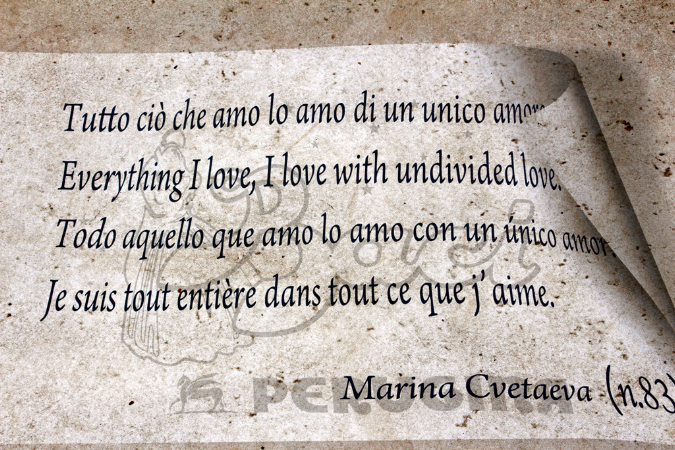 Tutto ciò che amo lo amo di un unico amore
Everything I love, I love with undivided love.
Todo aquello que amo lo amo con un único amor.
Je suis tout entière dans tout ce que j'aime.
Baci
PERUGINA
Marina Cvetaeva (n.83)